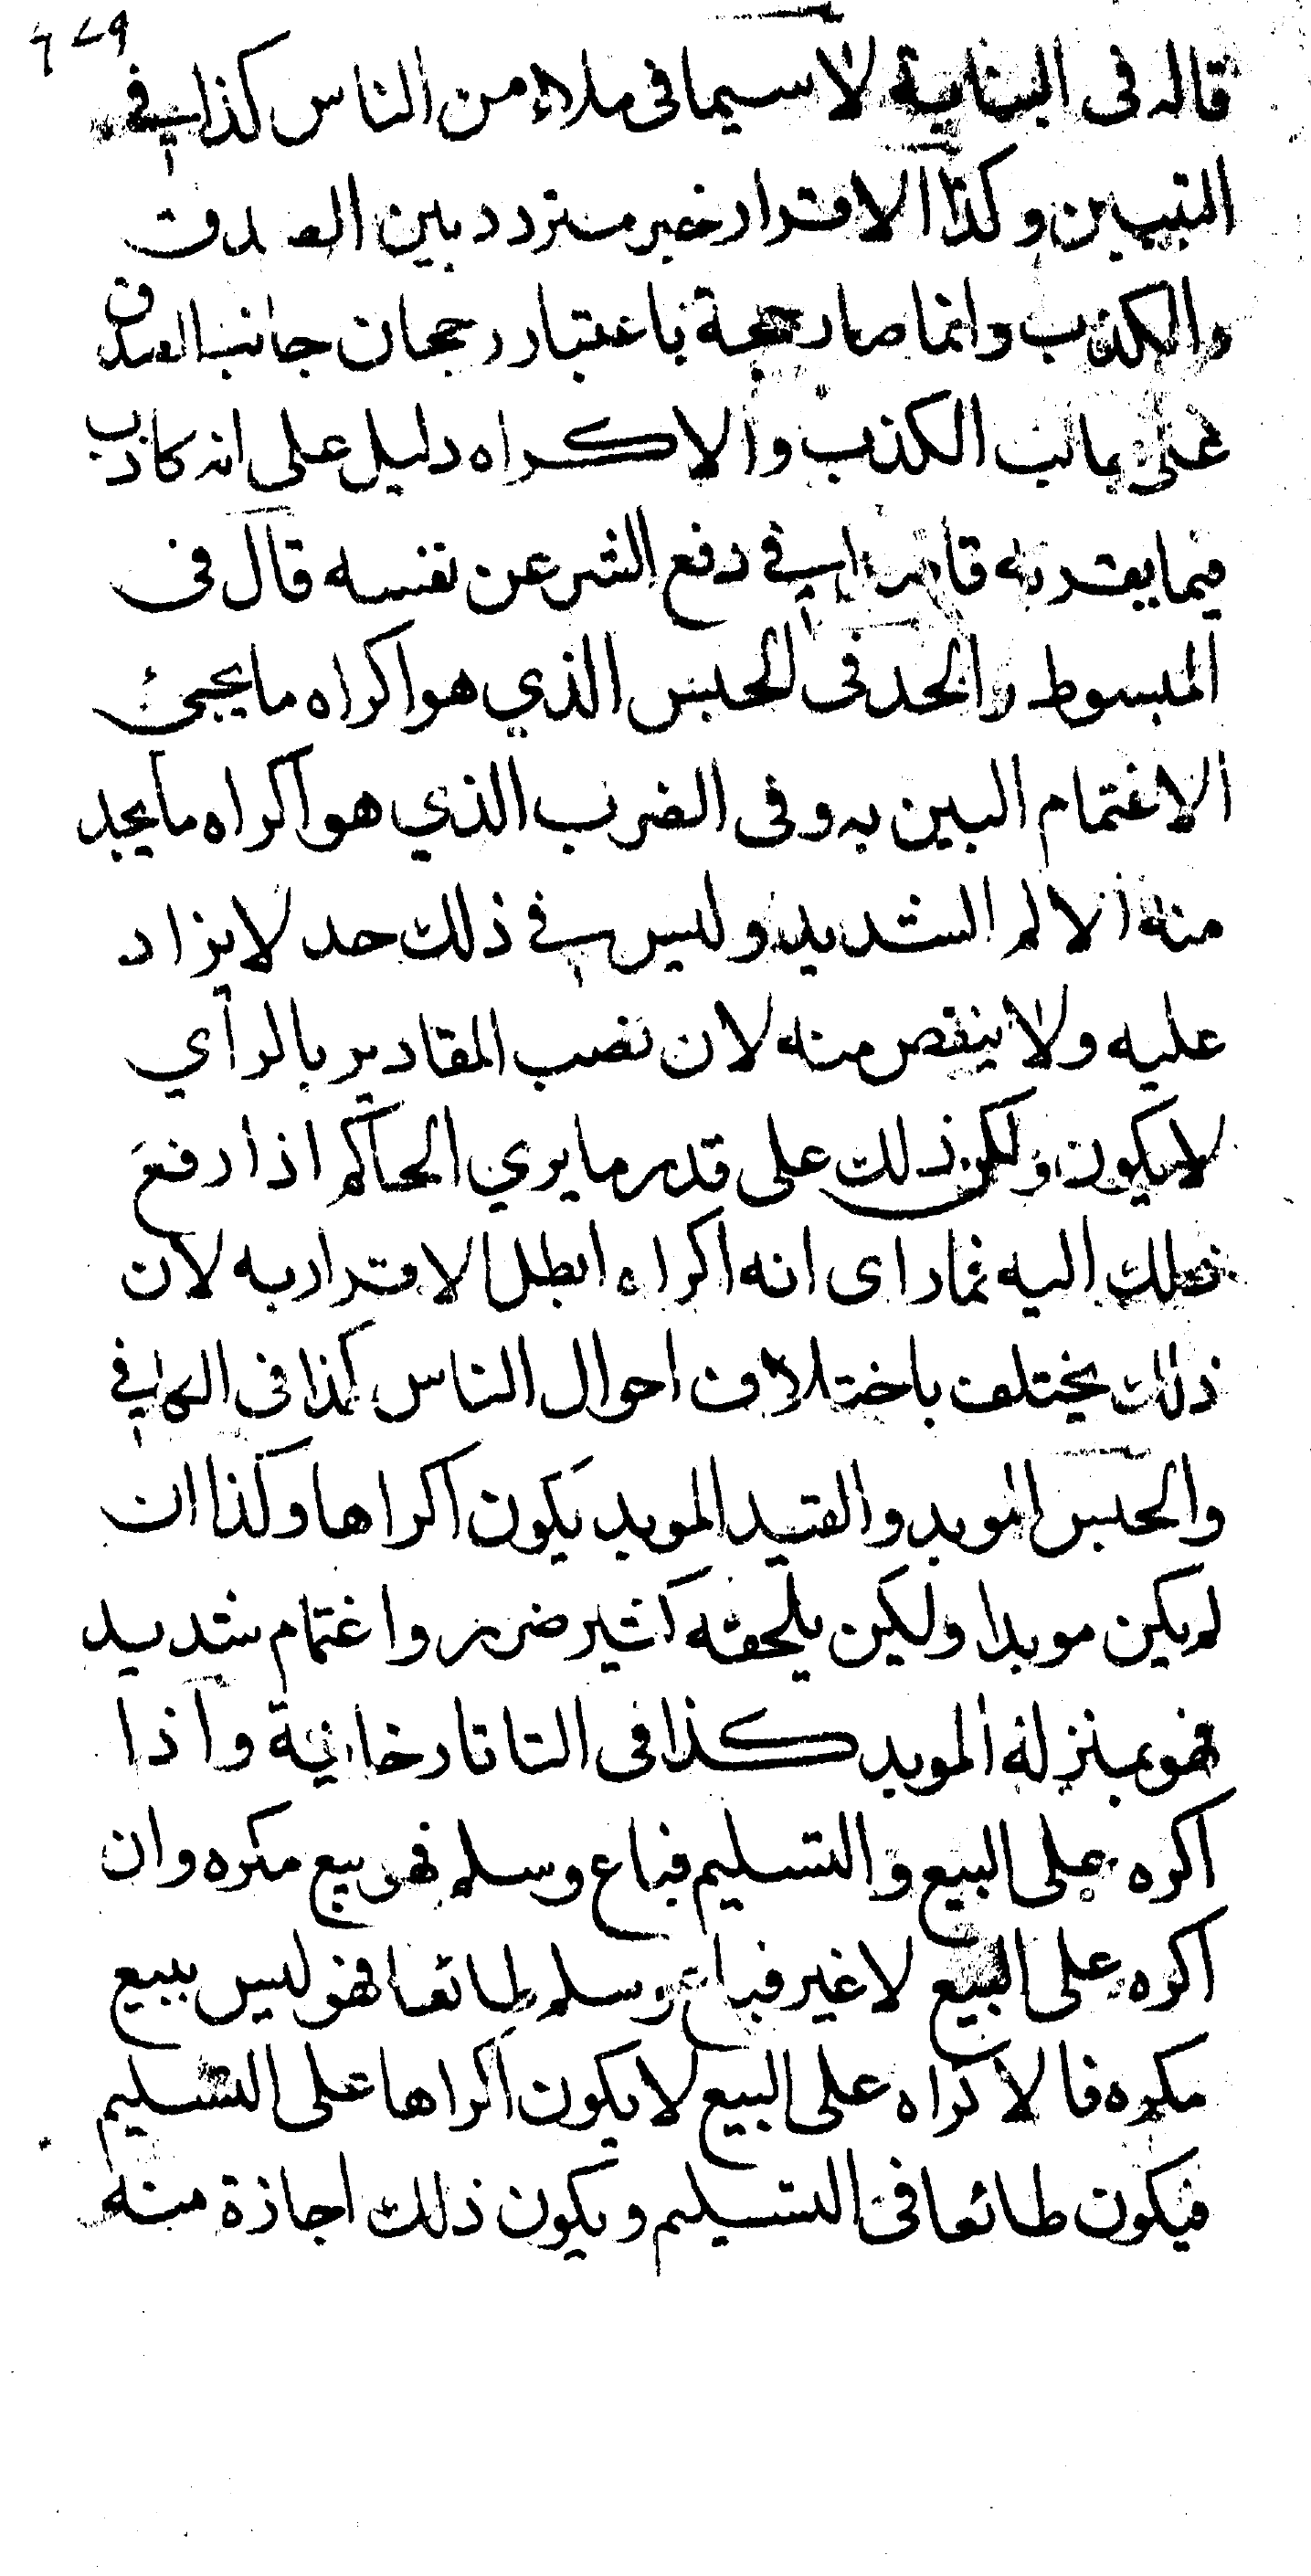 ٦٤٩
قاله فى البناية لا سيما فى ملاء من الناس كذا في
التبيين وكذا الاقرار خبر متردد بين الصدق
والكذب وانما صار حجة باعتبار رجحان جانب الصدق
على جانب الكذب والاكراه دليل على انه كاذب
فيما يقر به قاصدا في دفع الشر عن نفسه قال فى
المبسوط والحد فى الحبس الذي هو اكراه ما يجيئ
الاغتمام البين به وفى الضرب الذي هو اكراه ما يجد
منه الالم الشديد وليس في ذلك حد لا يزاد
عليه ولا ينقص منه لان نصب المقادير بالرأي
لا يكون ولكن ذلك على قدر ما يري الحاكم اذا رفع
ذلك اليه فما راى انه اكراه ابطل الاقرار به لان
ذلك يختلف باختلاف احوال الناس كذا فى الكافي
والحبس الموبد والقيد الموبد يكون اكراها وكذا ان
لم يكن موبدا ولكن يلحقه كثير ضرر واغتمام شديد
فهو بمنزلة الموبد كذا فى التاتارخانية واذا
اكره على البيع والتسليم فباع وسلم فهو بيع مكره وان
اكره على البيع لا غير فباع وسلم طائعا فهو ليس ببيع
مكره فالاكراه على البيع لا يكون اكراها على التسليم
فيكون طائعا فى التسليم ويكون ذلك اجازة منه